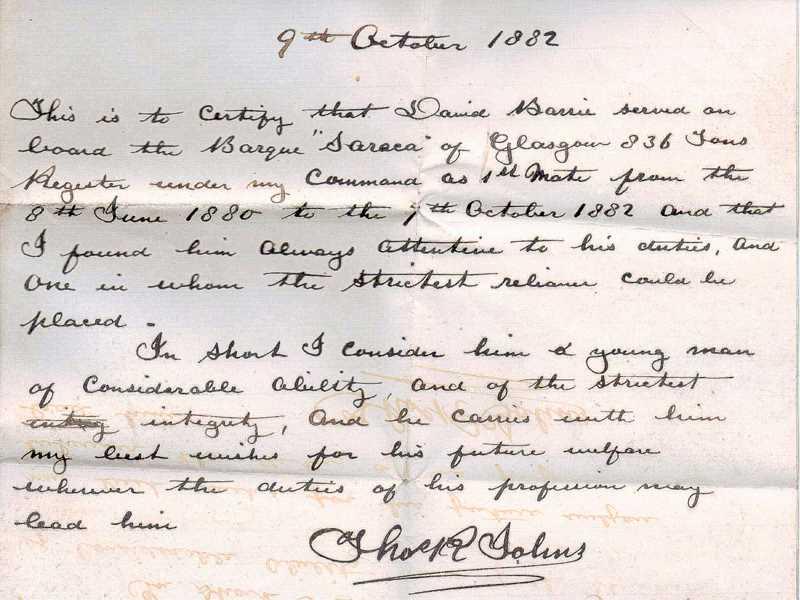 9th October 1882
This is to certify that David Barrie served on
board the Barque "Saraca" of Glasgow 836 Tons
Register under my Command as 1st Mate from the
8th June 1880 to the 9th October 1882 and that
I found him always attentive to his duties, and
one in whom the strictest reliance could be
placed -
In short I consider him a young man
of considerable ability, and of the strictest
integrity, and he carries with him
my best wishes for his future welfare
wherever the duties of his profession may
lead him
Thos R Johns